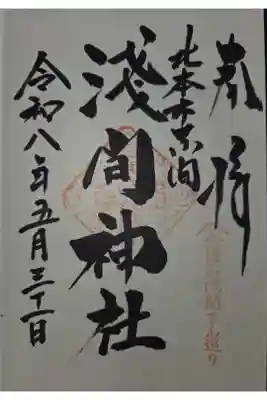 奉拝
北本市東間
淺間神社
令和八年五月三十一日